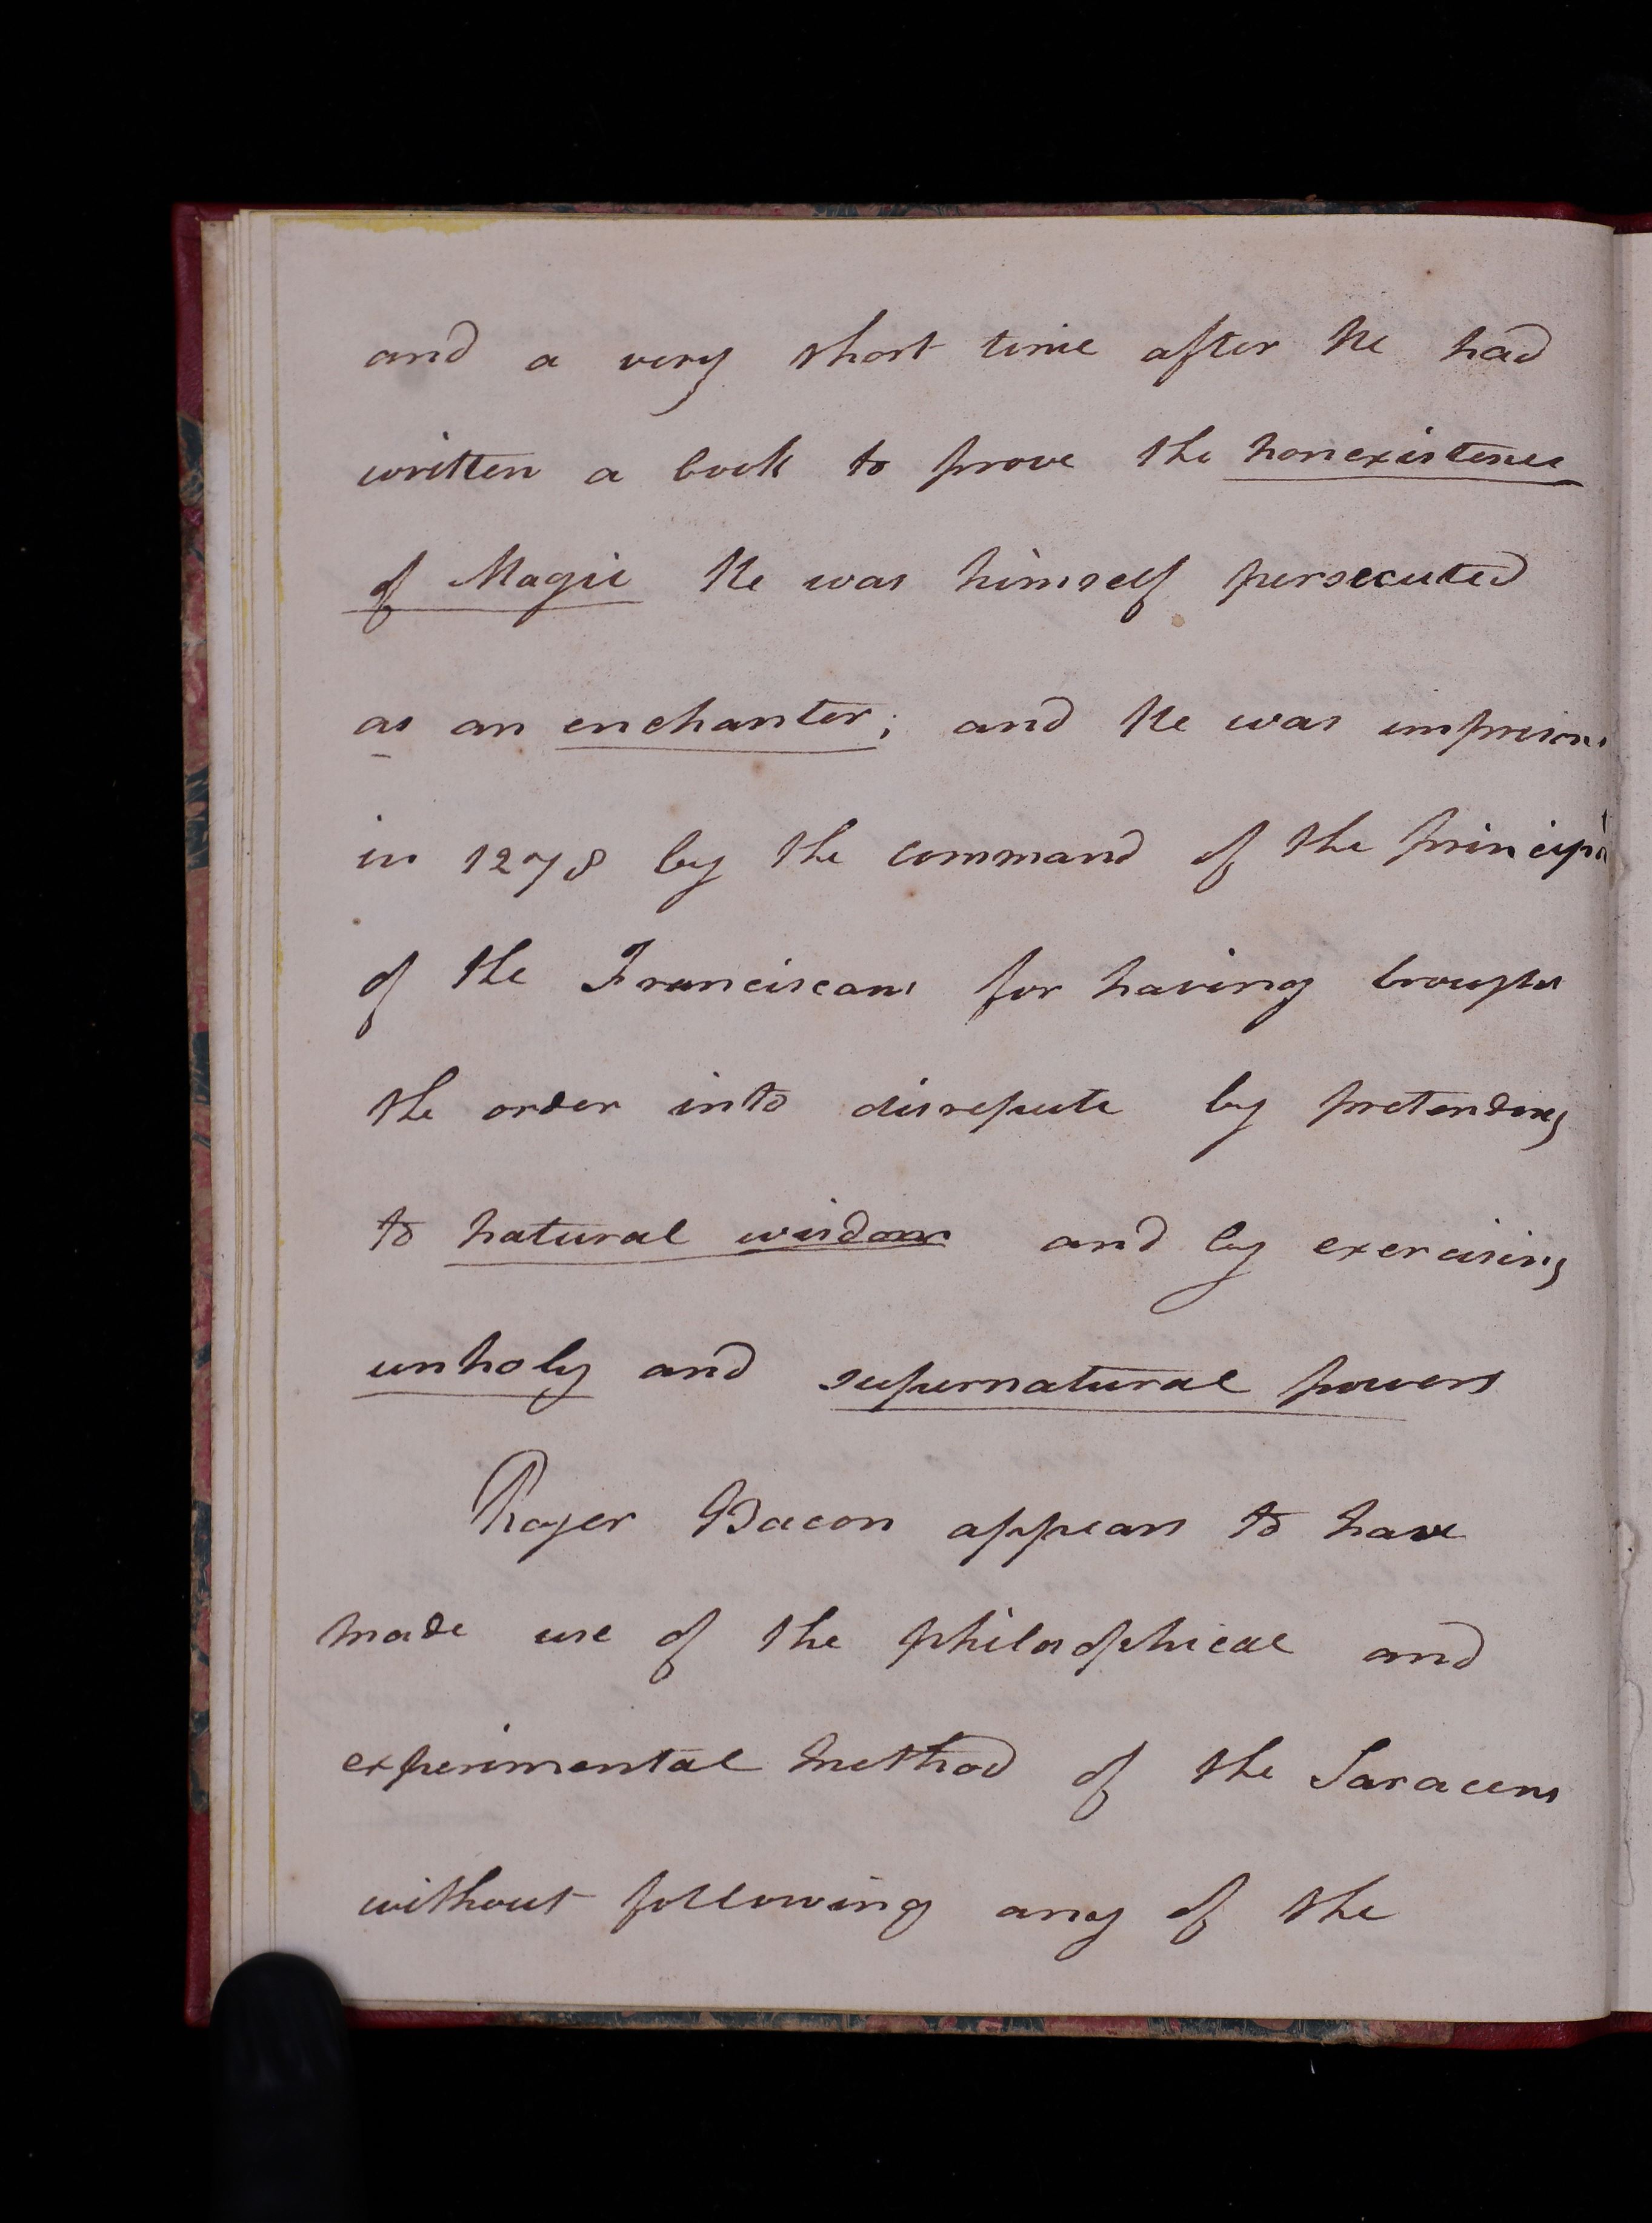 and a very short time after he had
written a book to prove the nonexistence
of Magic he was himself persecuted
as an enchanter; and he was imprison
in 1278 by the command of the principa
of the Franciscans for having brought
the order into disrepute by pretending
to natural wisdom and by exercising
unholy and supernatural powers
Roger Bacon appears to have
made use of the philosophical and
experimental method of the Saracens
without following any of the